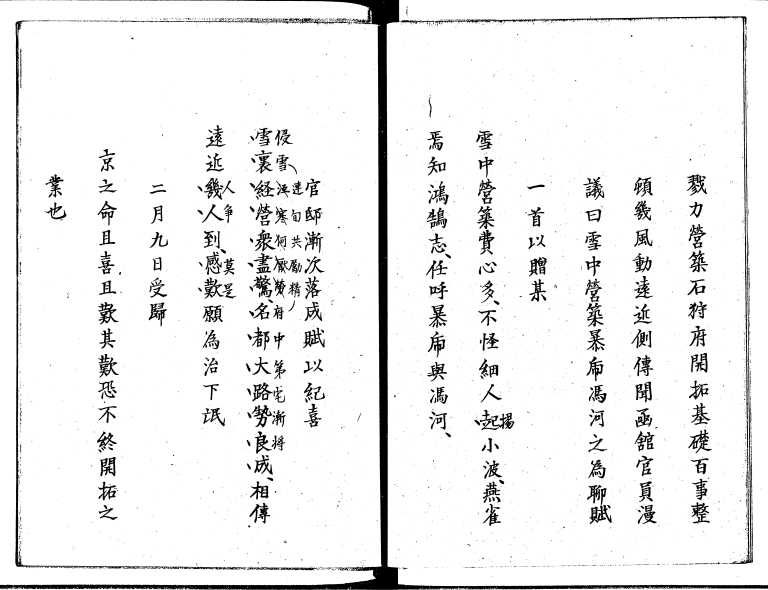 戮力營築石狩府開拓基礎百事整
頓幾風動遠近側傳聞函舘官員漫
議曰雪中營築暴乕馮河之為聊賦
一首以贈某
雪中營築費心多、不怪細人起小波、燕雀
揚
焉知鴻鵠志、任呼暴乕與馮河、
官邸漸次落成賦以紀喜
連旬共勵精
侵雪 寒何厭勞府中第宅漸将
雪裏経營衆盡驚、名都大路勢良成、相傳
人争 莫是
遠近幾人到、感歎願為治下氓
二月九日受歸
京之命且喜且歎其歎恐不終開拓之
業也